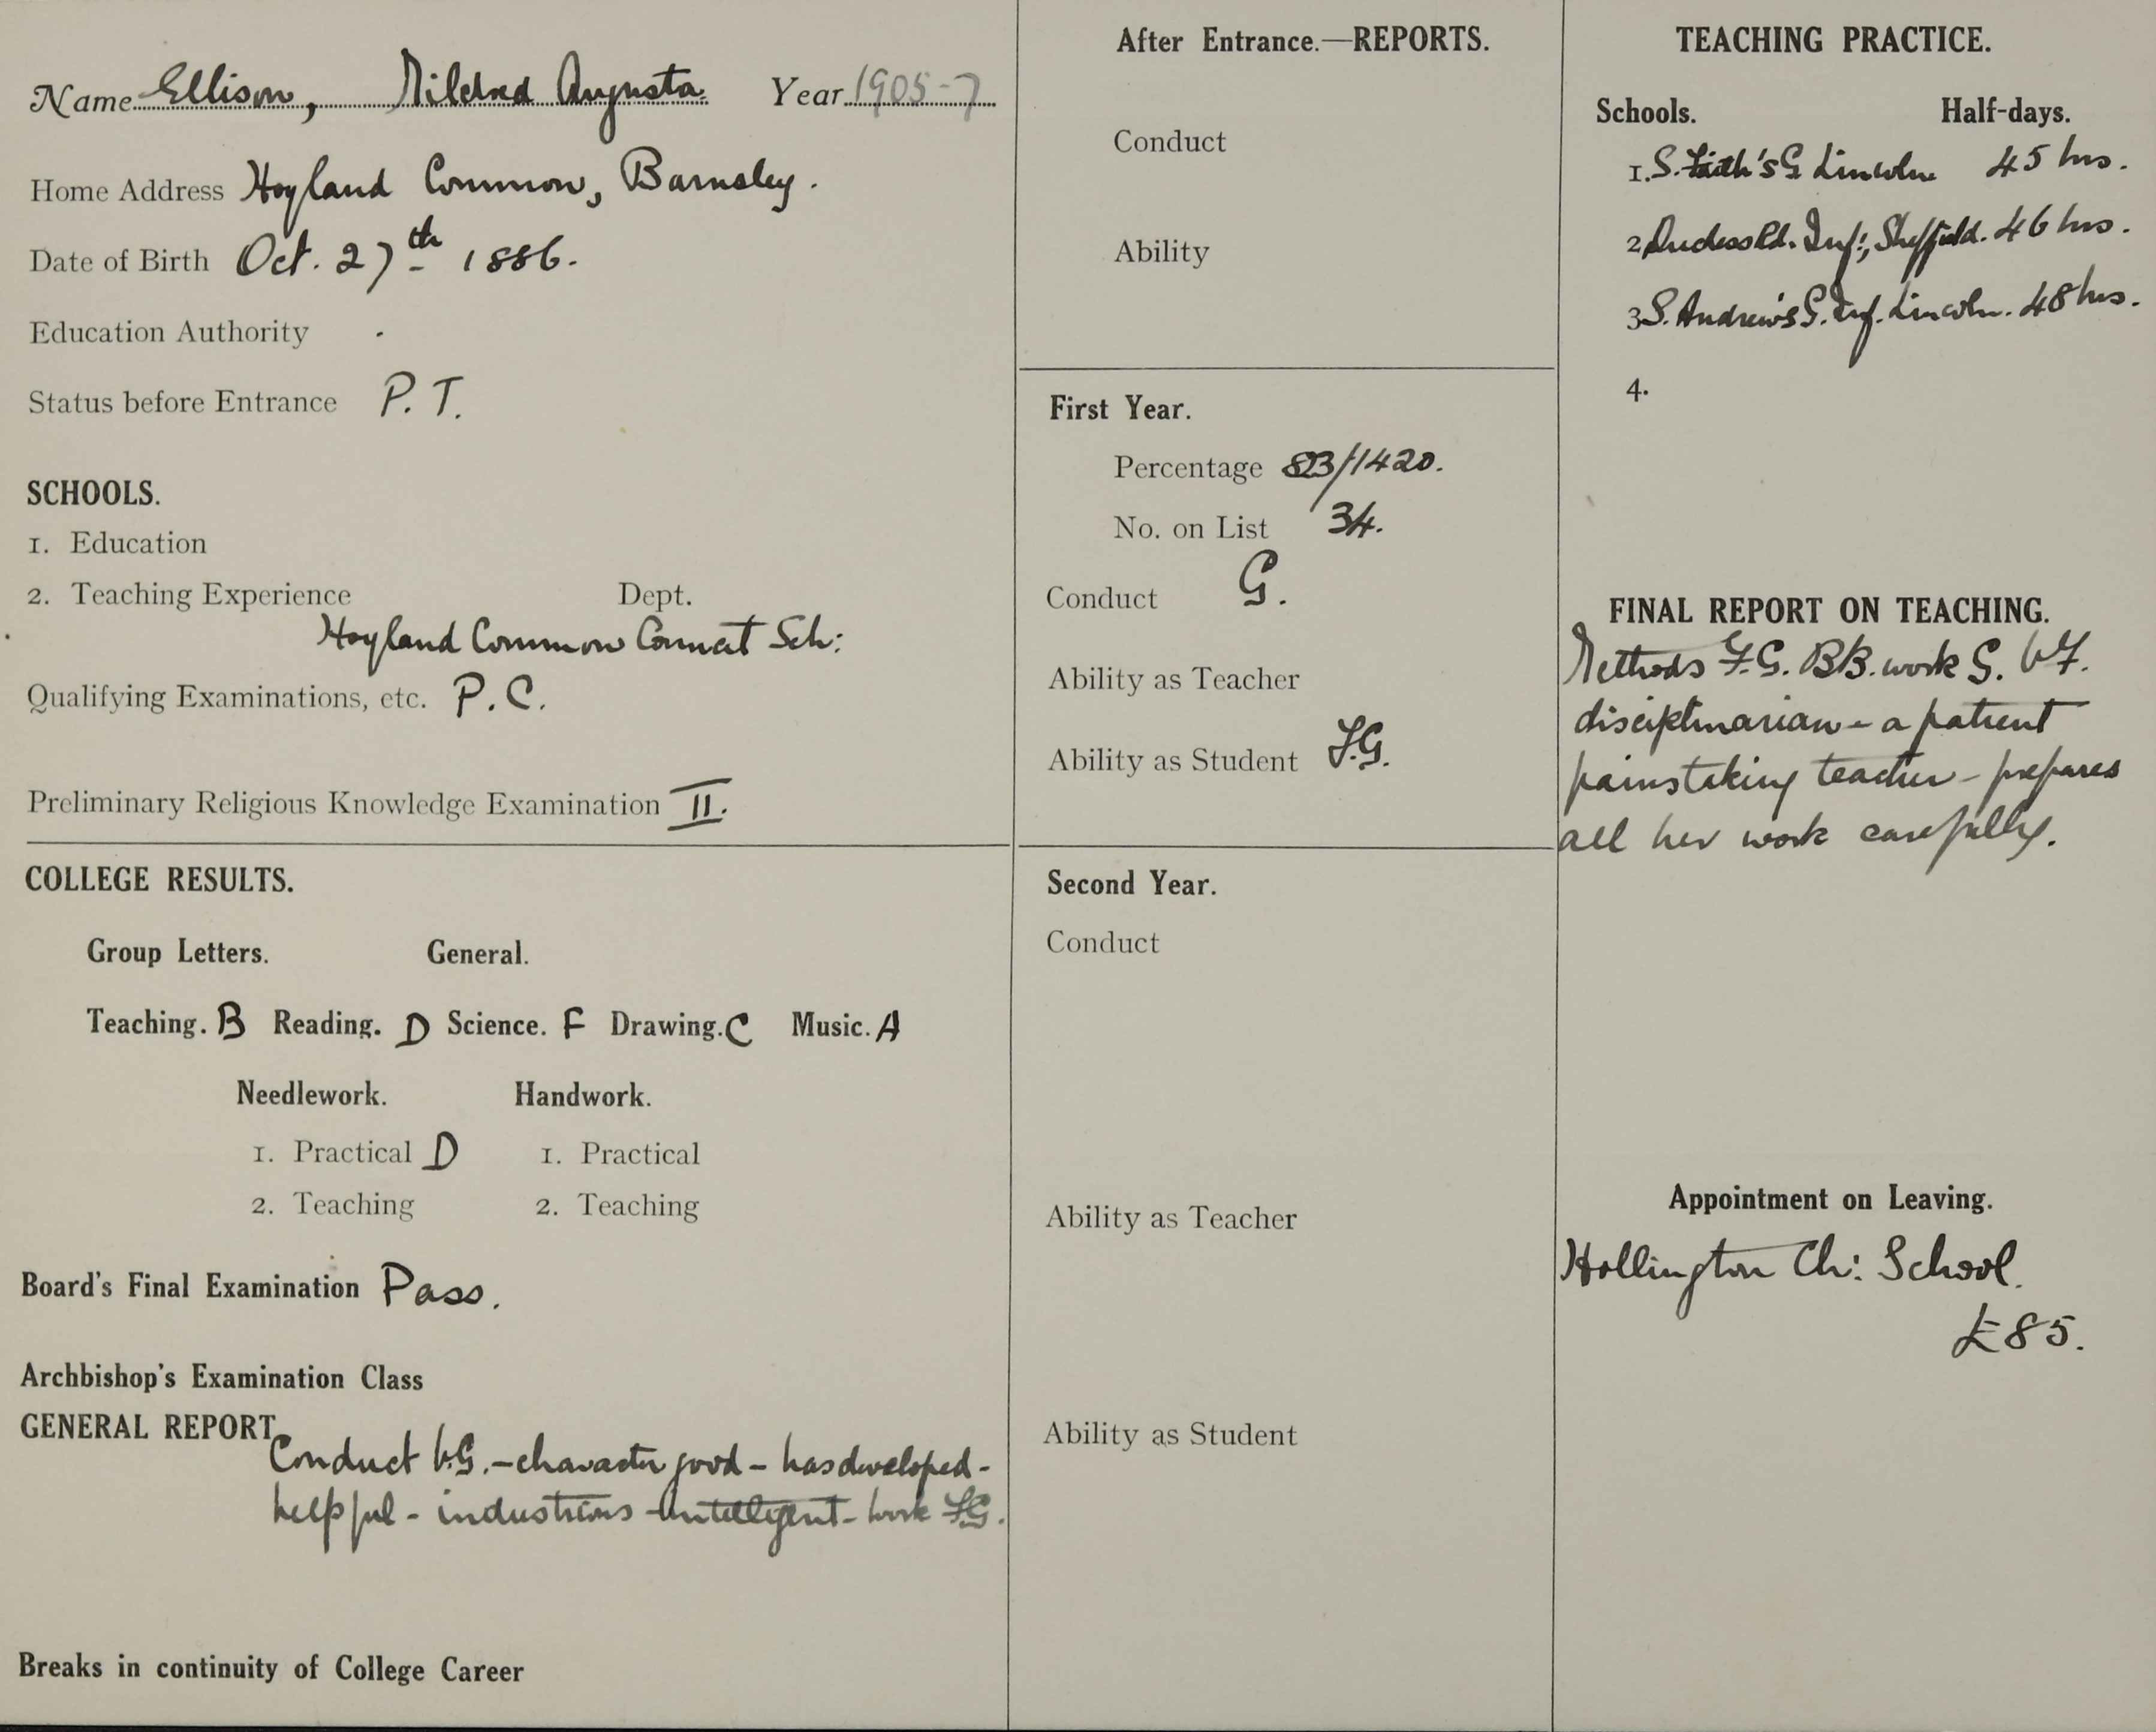 Name Ellison, Mildred Augusta. Year 1905-7
Home Address Hoyland Common, Barnsley.
Date of Birth Oct. 27th 1886.
Education Authority
Status before Entrance P.T.
SCHOOLS.
1. Education
2. Teaching Experience Dept.
Hoyland Common Council Sch:
Qualifying Examinations, etc. P.C.
Preliminary Religious Knowledge Examination II.
COLLEGE RESULTS.
Group Letters. General.
Teaching. B Reading. D Science. F Drawing. C Music. A
Needlework. Handwork.
1. Practical D 1. Practical
2. Teaching 2. Teaching
Board's Final Examination Pass.
Archbishop's Examination Class
GENERAL REPORT
Conduct V.G. - character good - has developed -
helpful - industrious - intelligent - work F.G.
Breaks in continuity of College Career
After Entrance.—REPORTS.
Conduct
Ability
First Year.
Percentage /1420.
No. on List 34.
Conduct G.
Ability as Teacher
Ability as Student F.G.
Second Year.
Conduct
Ability as Teacher
Ability as Student
TEACHING PRACTICE.
Schools. Half-days.
1. S. Faith's G Lincoln 45 hrs.
2 Duchess Rd. Inf:, Sheffield. 46 hrs.
3 S. Andrew's G. Inf. Lincoln. 48 hrs.
4.
FINAL REPORT ON TEACHING.
Methods F.G. BB. work G. V.F.
disciplinarian - a patient
painstaking teacher - prepares
all her work carefully.
Appointment on Leaving.
Hollington Ch: School.
£85.